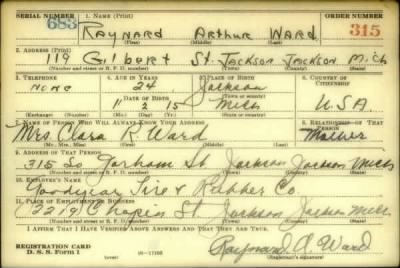 SERIAL NUMBER 1. NAME (Print) ORDER NUMBER
683 RAYNARD ARTHUR WARD 315
(First) (Middle) (Last)
2. ADDRESS (Print)
119 Gilbert St. Jackson Jackson Mich
(Number and street or R. F. D. number) (Town) (County) (State)
3. TELEPHONE 4. AGE IN YEARS 5. PLACE OF BIRTH 6. COUNTRY OF CITIZENSHIP
none 24 Jackson
(Town or county)
DATE OF BIRTH
11 2 15 Mich U.S.A.
(Exchange) (Number) (Mo.) (Day) (Yr.) (State or country)
7. NAME OF PERSON WHO WILL ALWAYS KNOW YOUR ADDRESS 8. RELATIONSHIP OF THAT PERSON
Mrs. Clara R. Ward Mother
(Mr., Mrs., Miss) (First) (Middle) (Last)
9. ADDRESS OF THAT PERSON
315 So. Gorham St Jackson Jackson Mich
(Number and street or R. F. D. number) (Town) (County) (State)
10. EMPLOYER'S NAME
Goodyear Tire & Rubber Co.
11. PLACE OF EMPLOYMENT OR BUSINESS
Chapin St Jackson Jackson Mich
(Number and street or R. F. D. number) (Town) (County) (State)
I AFFIRM THAT I HAVE VERIFIED ABOVE ANSWERS AND THAT THEY ARE TRUE.
REGISTRATION CARD
D. S. S. Form 1
(over)
Raynard A. Ward